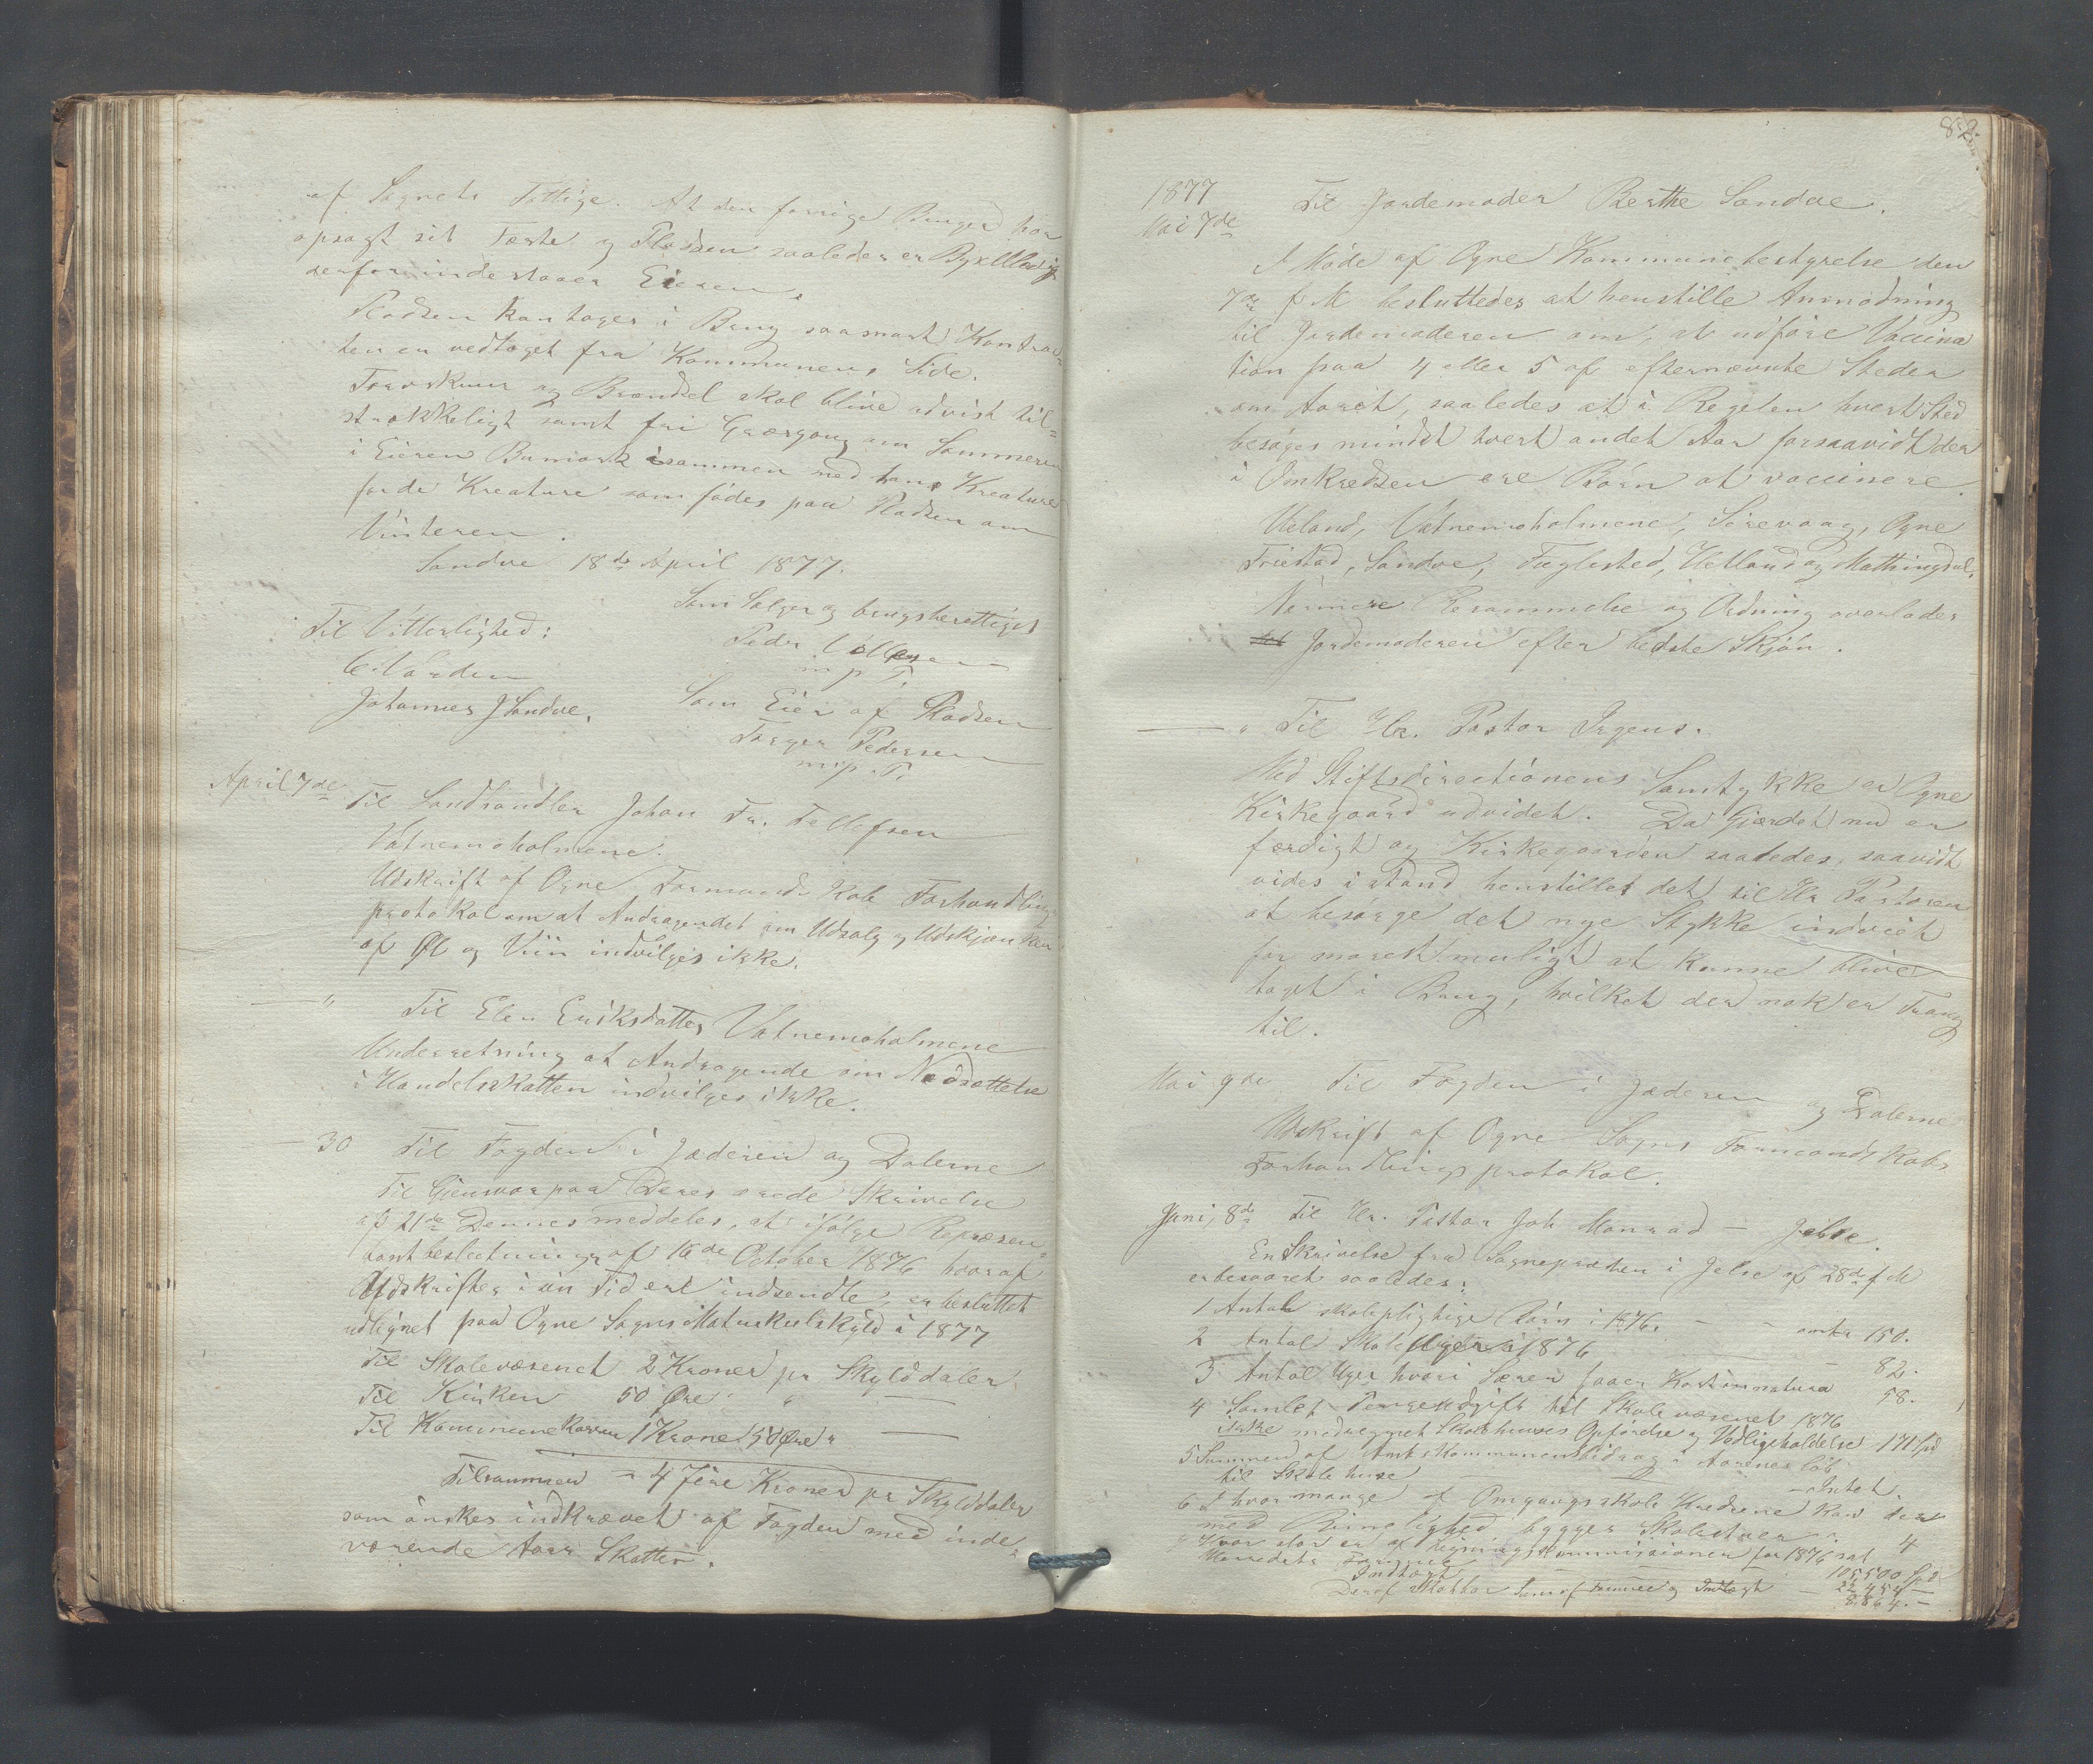 af Sognets Fattige. At den forrige Bruger har
opsagt sit Fæste og Pladsen saaledes er Byxelledig
derfor indestaaer Eieren.
Pladsen kan tages i Brug saasnart Kontrac-
ten er vedtaget fra Kommunens Side.
Torvskuur og Brændsel skal blive udvist til-
strækkeligt samt fri Græsgang om Sommeren
i Eieren Bumark sammen med hans Kreature
for de Kreature som födes paa Pladsen om
Vinteren.
Sandve 18de April 1877.
Som Sælger og brugsberettiget
Til Vitterlighed:
Peder
m p T.
Johannes J Sandve.
Som Eier af Pladsen
Torger Pedersen
m p. T.
April 7de Til Landhandler Johan Fr. Tellefsen
Vatnemoholmene.
Udskrift af Ogne Formandskabs Forhandlings
protokol om at Andragendet om Udsalg og Udskjænken
af Øl og Viin indvilges ikke.
— " Til Elen Eriksdatter Vatnemoholmene
Underretning at Andragende om Nedsættelse
i Handelsskatten indvilges ikke.
— 30 Til Fogden i Jæderen og Dalerne
Til Giensvar paa Deres ærede Skrivelse
af 21de Dennes meddeles, at ifölge Repræsen-
tantbeslutning af 16de October 1876 hvoraf
Udskrifter i sin Tid ere indsendte, er besluttet
udlignet paa Ogne Sogns Matrikulskyld i 1877
Til Skolevæsenet 2 Kroner pr Skylddaler
Til Kirken 50 Øre " —
Til Kommunekassen 1 Krone 50 Øre " —
Tilsammen = 4 Fire Kroner pr Skylddaler
som önskes indkrævet af Fogden med inde-
værende Aars Skatter.
82.
1877
Mai 7de Til Jordemoder Berthe Sandve.
I Möde af Ogne Kommunebestyrelse den
7de f M besluttedes at henstille Anmodning
til Jordemoderen om, at udföre Vaccina
tion paa 4 eller 5 af efternævnte Steder
om Aaret, saaledes at i Regelen hvert Sted
besöges mindst hvert andet Aar forsaavidt der
i Omkredsen ere Börn at vaccinere.
Ueland, Vatnemoholmene, Sirevaag, Ogne
Friestad, Sandve, Fuglested, Hetland og Mathingsdal.
Nærmere Besammelse og Ordning overlades
Jordemoderen efter bedste Skjön.
— " Til Hr. Pastor Irgens.
Med Stiftsdirectionens Samtykke er Ogne
Kirkegaard udvidet. Da Gjærdet nu er
færdigt og Kirkegaarden saaledes, saavidt
vides i stand henstilles det til Hr Pastoren
at besörge det nye Stykke indviet
for snarest muligt at kunne blive
taget i Brug, hvilket der nok er Trang
til.
Mai 9de Til Fogden i Jæderen og Dalerne
Udskrift af Ogne Sogns Formandskabs
Forhandlingsprotokol.
Juni, 8de Til Hr. Pastor Joh Monrad — Jelse.
En Skrivelse fra Sognepræsten i Jelse af 28de f M
er besvaret saaledes:
1 Antal skolepligtige Börn i 1876. — - omtr 150.
2 Antal Skoleuger i 1876 — 82.
3 Antal Uger hvori Lærer faaer Kost in natura 58.
4 Samlet Pengeudgift til Skolevæsenet 1876
ikke medregnet Skolehuses Opförelse og Vedligeholdelse 171 Spd
5 Summen af Amtskommunens bidrag i Aarenes löb
til Skolehuse — Intet.
6 I hvor mange af Omgangsskole Kredsene kan der
med Rimelighed bygges Skolestuer. 4
" Hvor stor er af Ligningskommissionen for 1876 sat
Herredets Formue 105,500 Spd
Indtægt 22,454 —
Deraf Skatbar Sum af Formue og Indtægt — 8,864. —